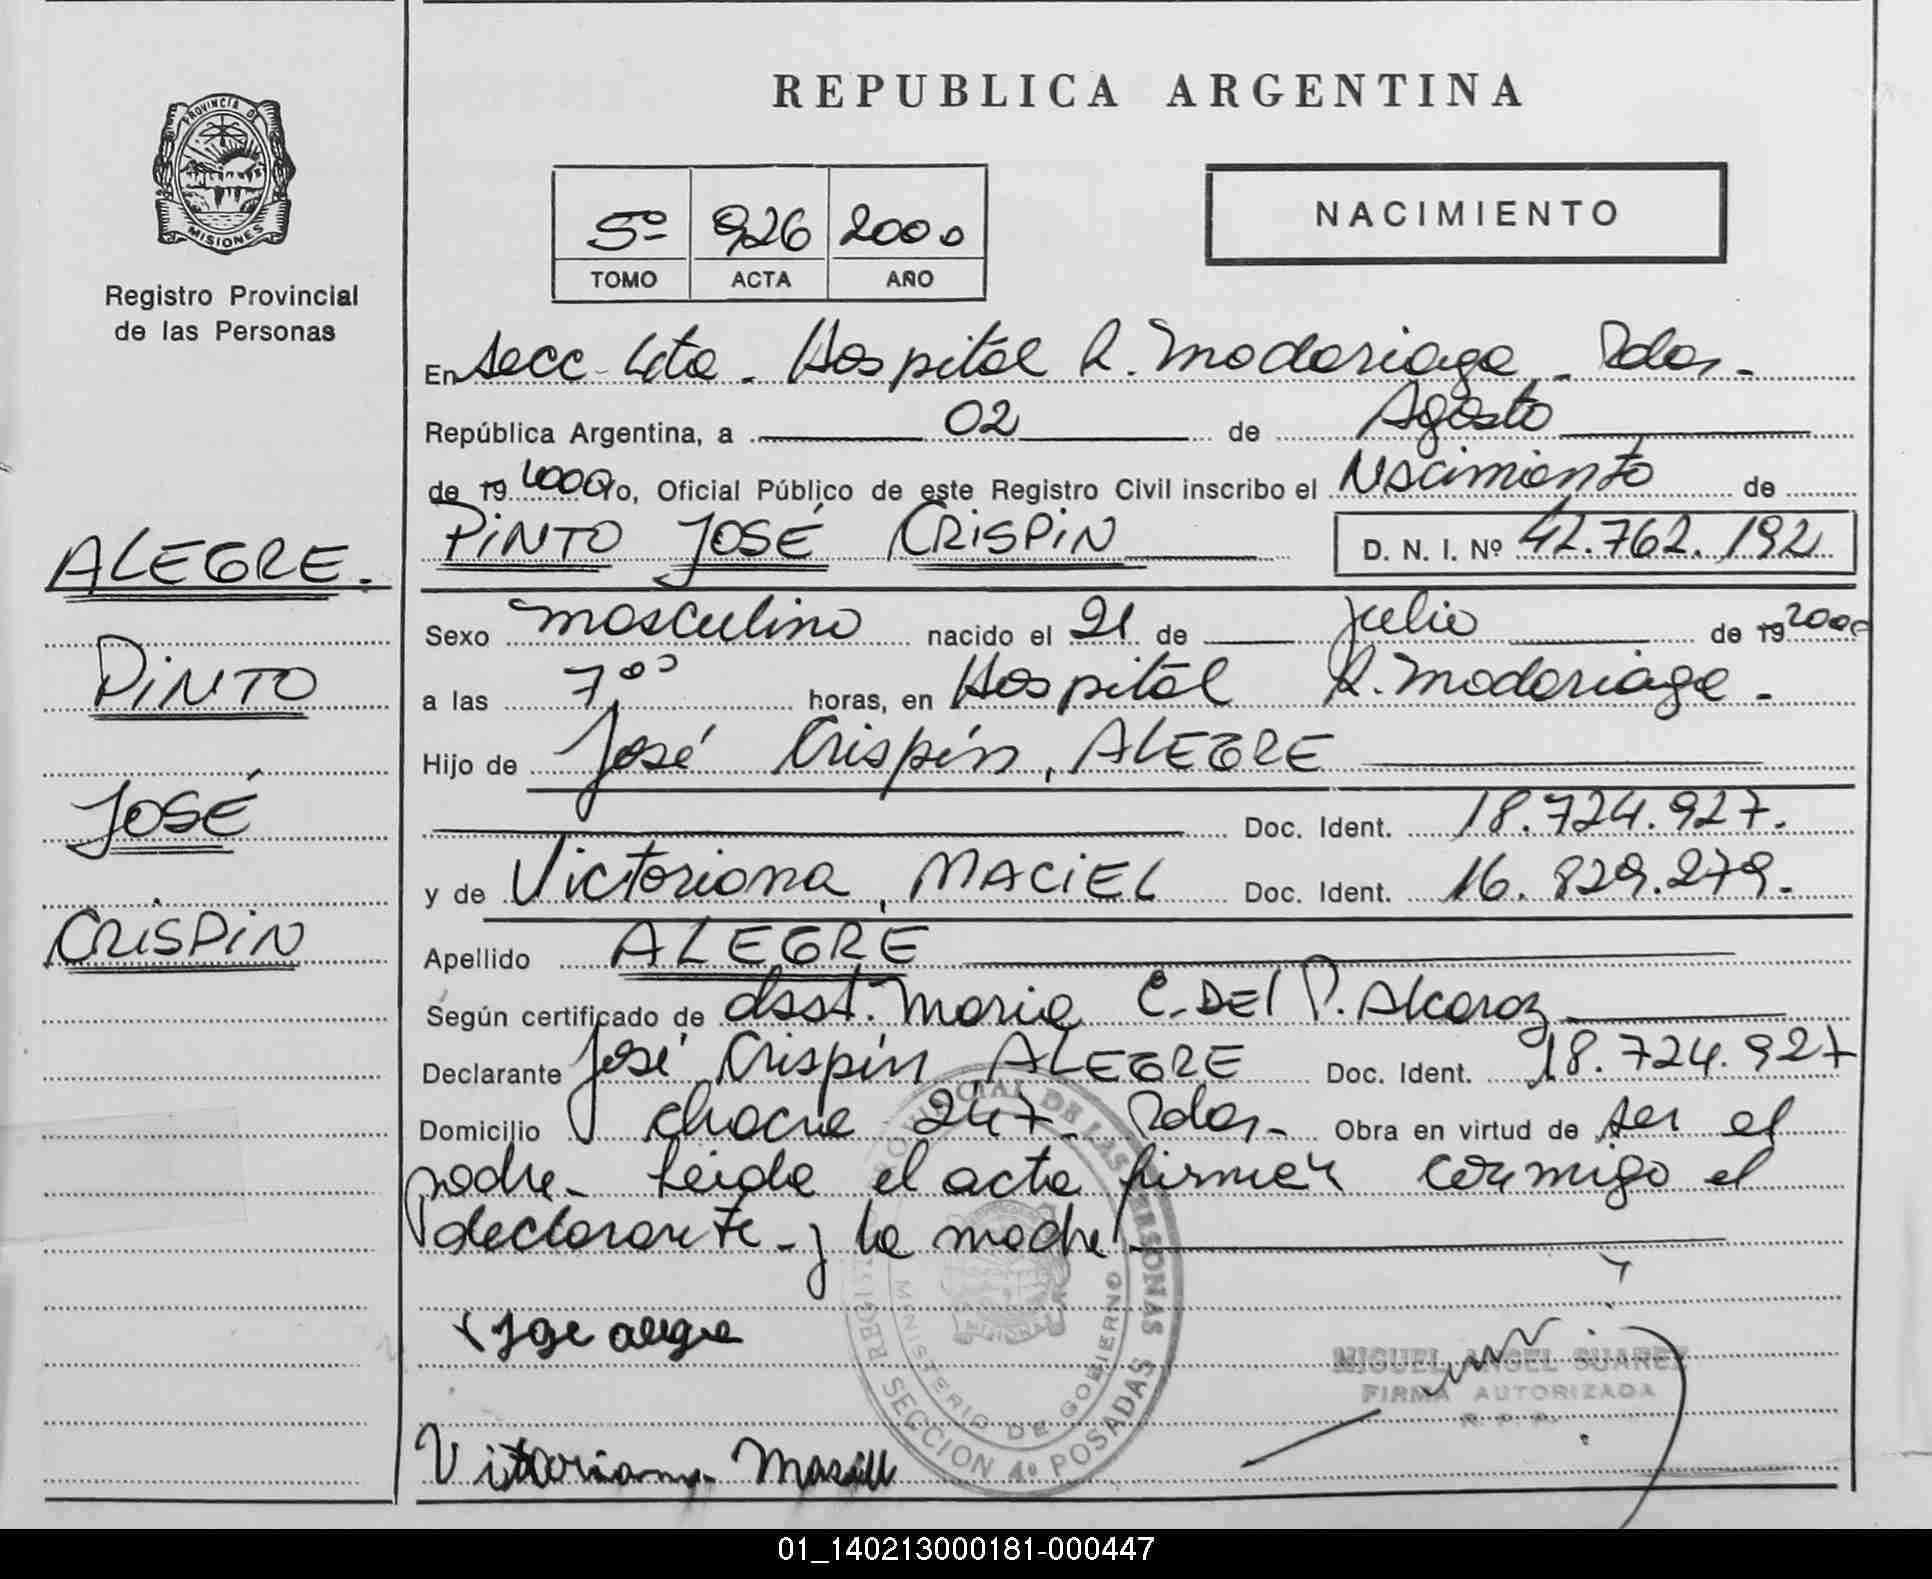 PROVINCIA DE
MISIONES
Registro Provincial
de las Personas
ALEGRE.
PINTO
JOSÉ
CRISPIN
REPUBLICA ARGENTINA
5º 926 2000
TOMO ACTA AÑO
NACIMIENTO
En Secc. 4ta. Hospital R. Madariaga - Pdas.
República Argentina, a 02 de Agosto
de 19 2000 Yo, Oficial Público de este Registro Civil inscribo el Nacimiento de
PINTO JOSÉ CRISPIN D. N. I. Nº 42.762.192
Sexo masculino nacido el 21 de julio de 19 2000
a las 7⁰⁰ horas, en Hospital R. Madariaga.
Hijo de José Crispín, ALEGRE
Doc. Ident. 18.724.927.
y de Victoriana, MACIEL Doc. Ident. 16.829.279.
Apellido ALEGRE
Según certificado de obsst. Maria C. DEL P. Alcaraz
Declarante José Crispín ALEGRE Doc. Ident. 18.724.927
Domicilio Chacra 247 - Pdas - Obra en virtud de ser el
padre - Leida el acta firman conmigo el
declarante - y la madre
REGISTRO PROVINCIAL DE LAS PERSONAS
MINISTERIO DE GOBIERNO
SECCION 4º POSADAS
MIGUEL ANGEL SUAREZ
FIRMA AUTORIZADA
R. P. P.
Victoriana
01_140213000181-000447